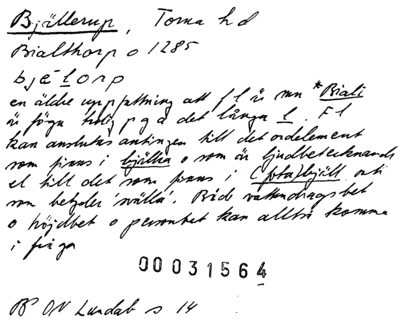 Bjällerup, Torna hd
Bialthorp o 1285
bjełorp
en äldre uppfattning att fl är mn *Biali
är föga trolig pga det långa l. Fl
kan anslutas antingen till det ordelement
som finns i bjällra o som är ljudbetecknande
el till det som finns i (fota)bjälle och
som betyder 'svälla'. Både vattendragsbet
o höjdbet o personbet kan alltså komma
i fråga
00031564
BP ON Lundab s 14